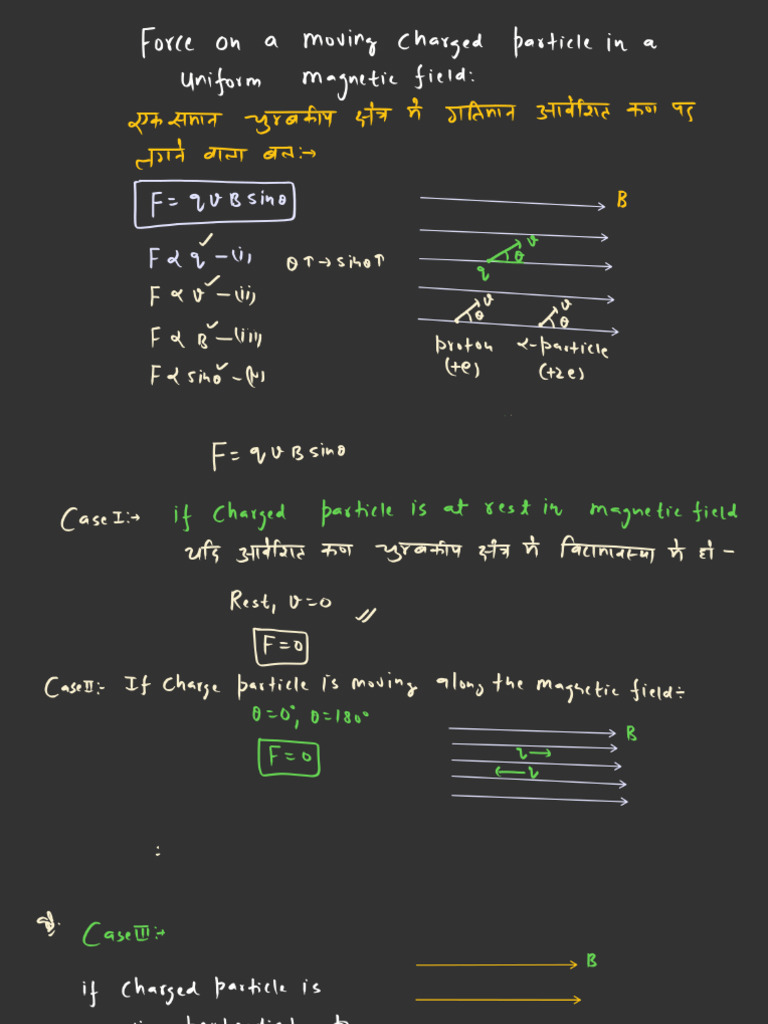 Force on a moving charged particle in a
uniform magnetic field:
एक समान चुम्बकीय क्षेत्र में गतिमान आवेशित कण पर
लगने वाला बल:→
F = qvB sinθ
B
F ∝ q —(i)
θ↑→ sinθ↑
v
θ
q
F ∝ v —(ii)
v
θ
v
θ
F ∝ B —(iii)
proton
α-particle
(+e)
(+2e)
F ∝ sinθ —(iv)
F = qvB sinθ
Case I:→ if charged particle is at rest in magnetic field
यदि आवेशित कण चुम्बकीय क्षेत्र में विरामावस्था में हो -
Rest, v=0
F=0
Case II:- If charge particle is moving along the magnetic field:-
θ=0°, θ=180°
B
F=0
q→
←q
Case III:→
B
if charged particle is